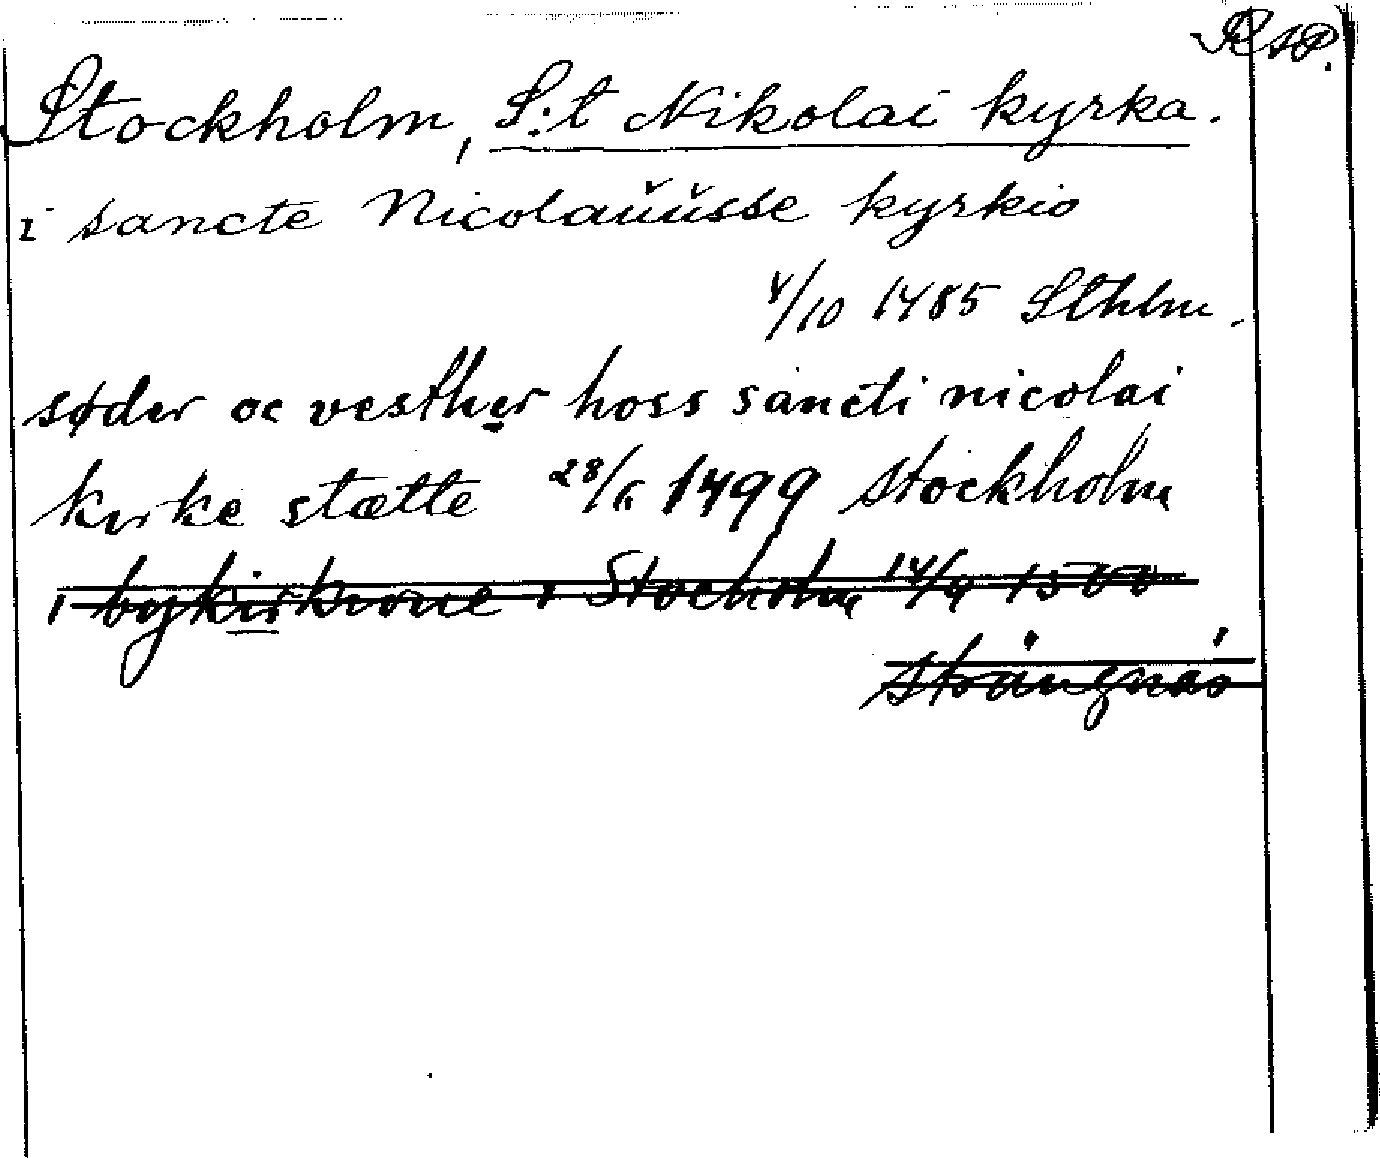 RAP.
Stockholm, S:t Nikolai kyrka.
i sancte Nicolaŭŭsse kyrkio
4/10 1485 Sthlm.
søder oc vesther hoss sancti nicolai
kirke stætte 28/6 1499 Stockholm
i bykirkione i Stocholm 14/9 1500
Strängnäs